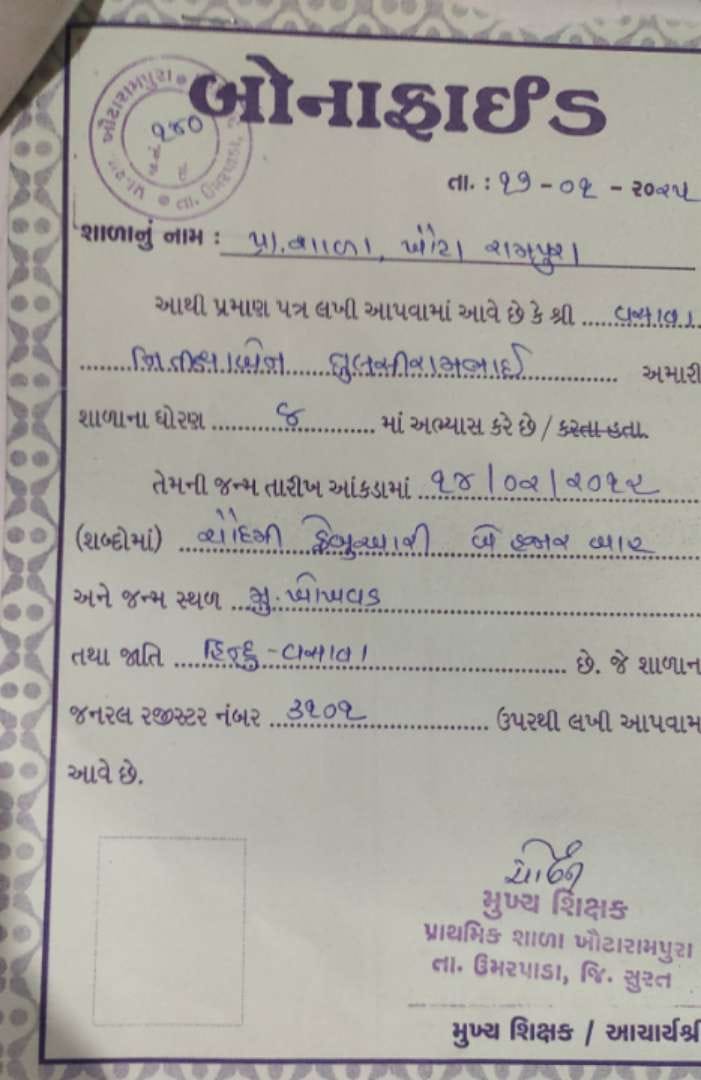 બોનાફાઈડ
ખોટારામપુરા
૧૪૦
તા. ઉમરપાડા,
તા. : ૧૭ - ૦૧ - ૨૦૨૫
શાળાનું નામ : પ્રા.શાળા, ખોટા રામપુરા
આથી પ્રમાણ પત્ર લખી આપવામાં આવે છે કે શ્રી ..... વસાવા
........ તુલસીરામભાઈ ............ અમારી
શાળાના ધોરણ ........ ૪ ........ માં અભ્યાસ કરે છે / કરતા હતા.
તેમની જન્મ તારીખ આંકડામાં ..૧૪/૦૨/૨૦૧૨
(શબ્દોમાં) ..ચૌદમી ફેબ્રુઆરી બે હજાર બાર
અને જન્મ સ્થળ ..મુ.
તથા જાતિ ....હિન્દુ - વસાવા............ છે. જે શાળાન
જનરલ રજીસ્ટર નંબર ..૩૧૦૧............ ઉપરથી લખી આપવામ
આવે છે.
મુખ્ય શિક્ષક
પ્રાથમિક શાળા ખોટારામપુરા
તા. ઉમરપાડા, જિ. સુરત
મુખ્ય શિક્ષક / આચાર્યશ્ર